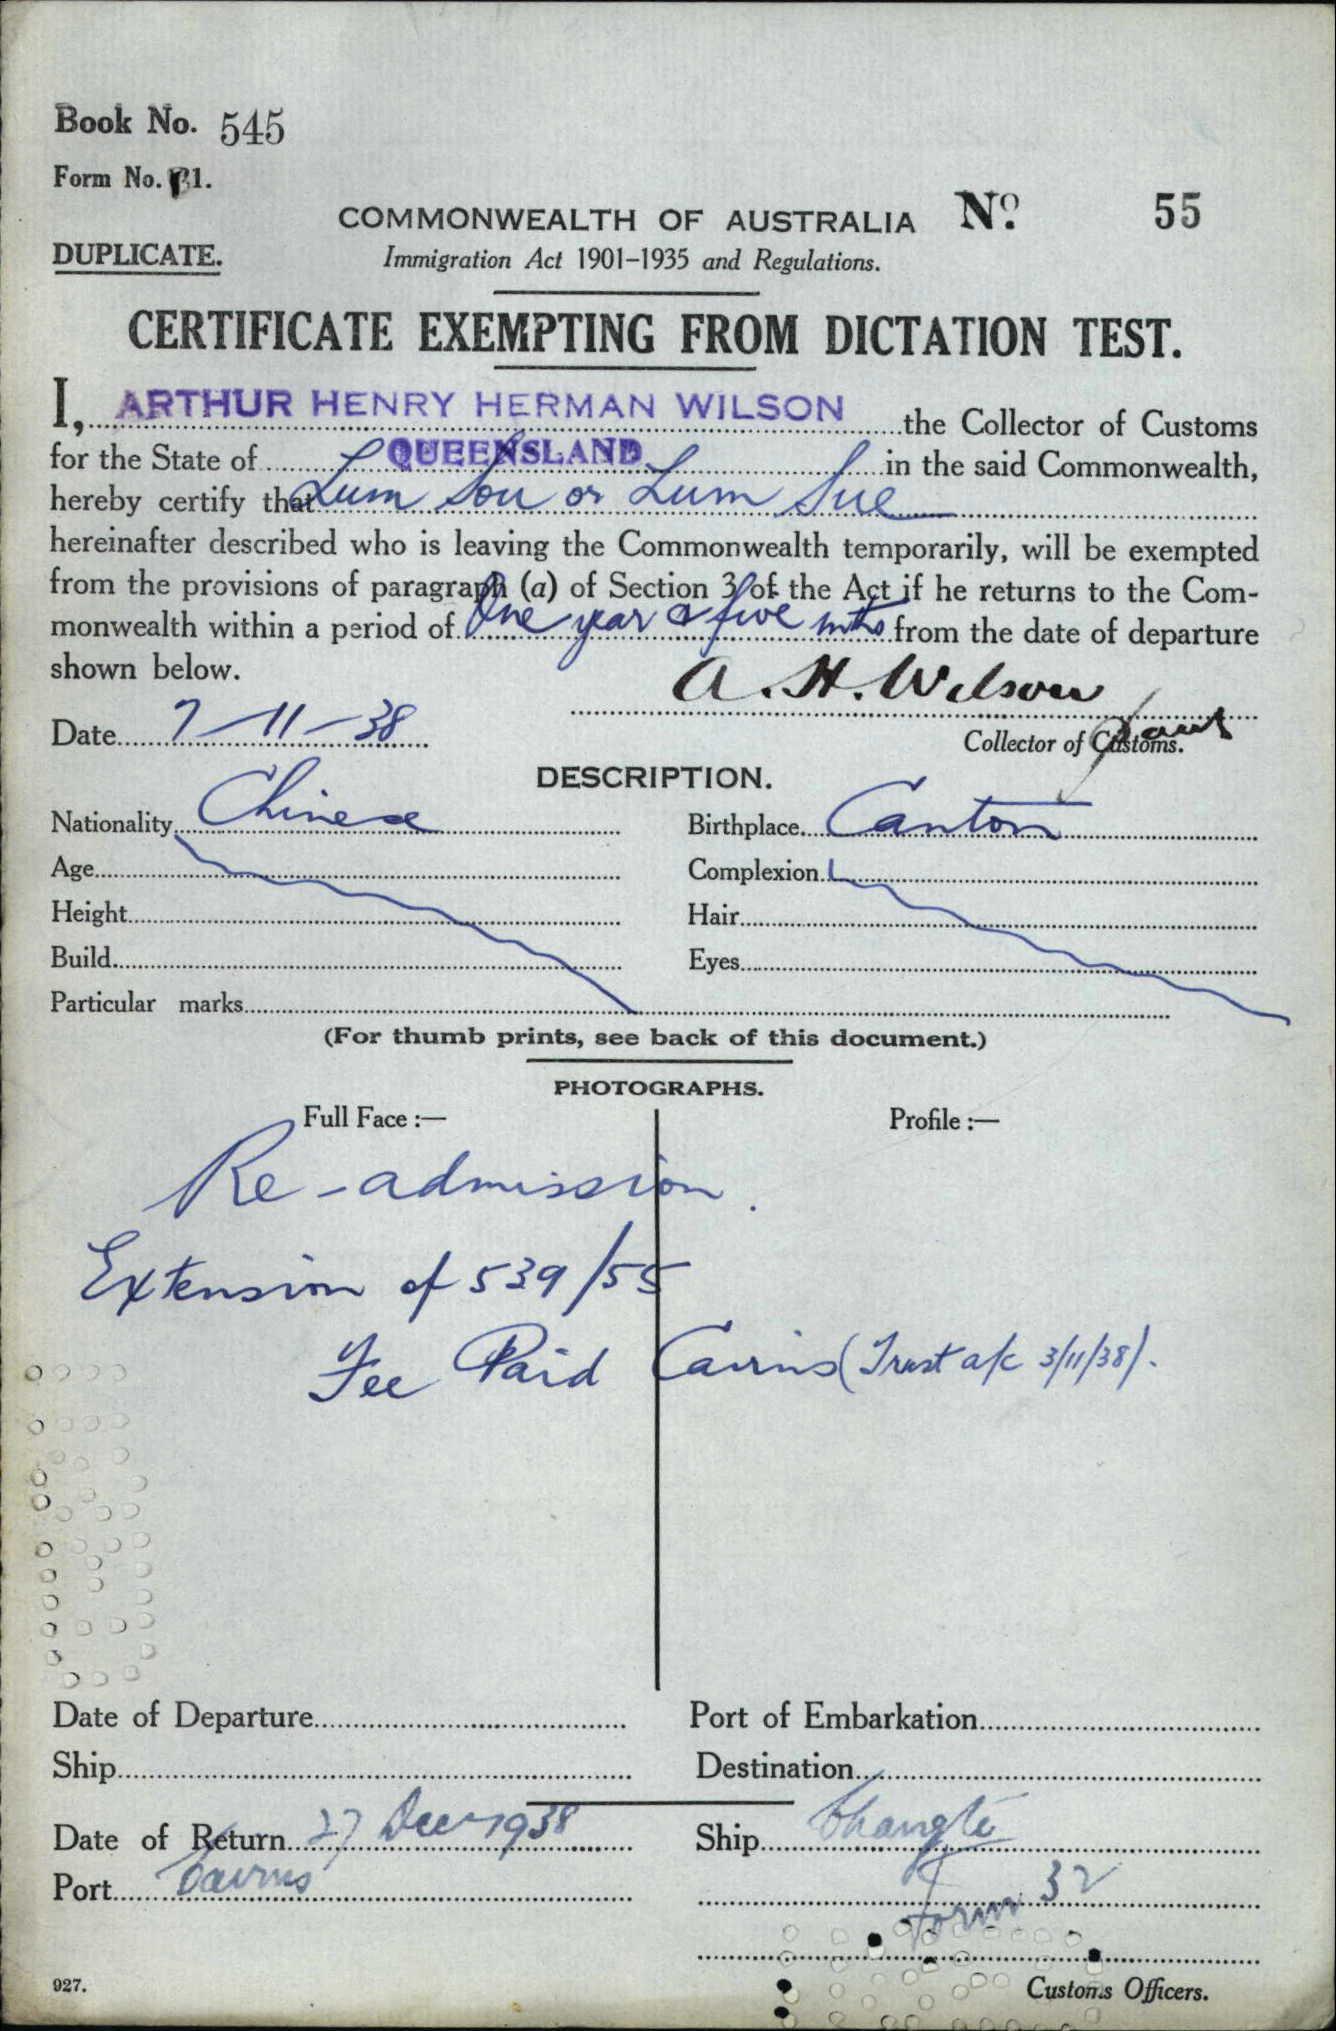 Book No. 545
Form No. 21.
COMMONWEALTH OF AUSTRALIA No. 55
DUPLICATE.
Immigration Act 1901-1935 and Regulations.
CERTIFICATE EXEMPTING FROM DICTATION TEST.
I, ARTHUR HENRY HERMAN WILSON the Collector of Customs
for the State of QUEENSLAND in the said Commonwealth,
hereby certify that Lum Sou or Lum Sue
hereinafter described who is leaving the Commonwealth temporarily, will be exempted
from the provisions of paragraph (a) of Section 3 of the Act if he returns to the Com-
monwealth within a period of One year & five mths from the date of departure
shown below.
A. H. Wilson
Date 7-11-38
Collector of Customs.
DESCRIPTION.
Nationality Chinese Birthplace Canton
Age Complexion
Height Hair
Build Eyes
Particular marks
(For thumb prints, see back of this document.)
PHOTOGRAPHS.
Full Face :— Profile :—
Re-admission.
Extension of 539/55
Fee Paid Cairns (Trust a/c 3/11/38).
Date of Departure Port of Embarkation
Ship Destination
Date of Return 27 Dec 1938 Ship Changte
Port Cairns
Form 32
927. Customs Officers.